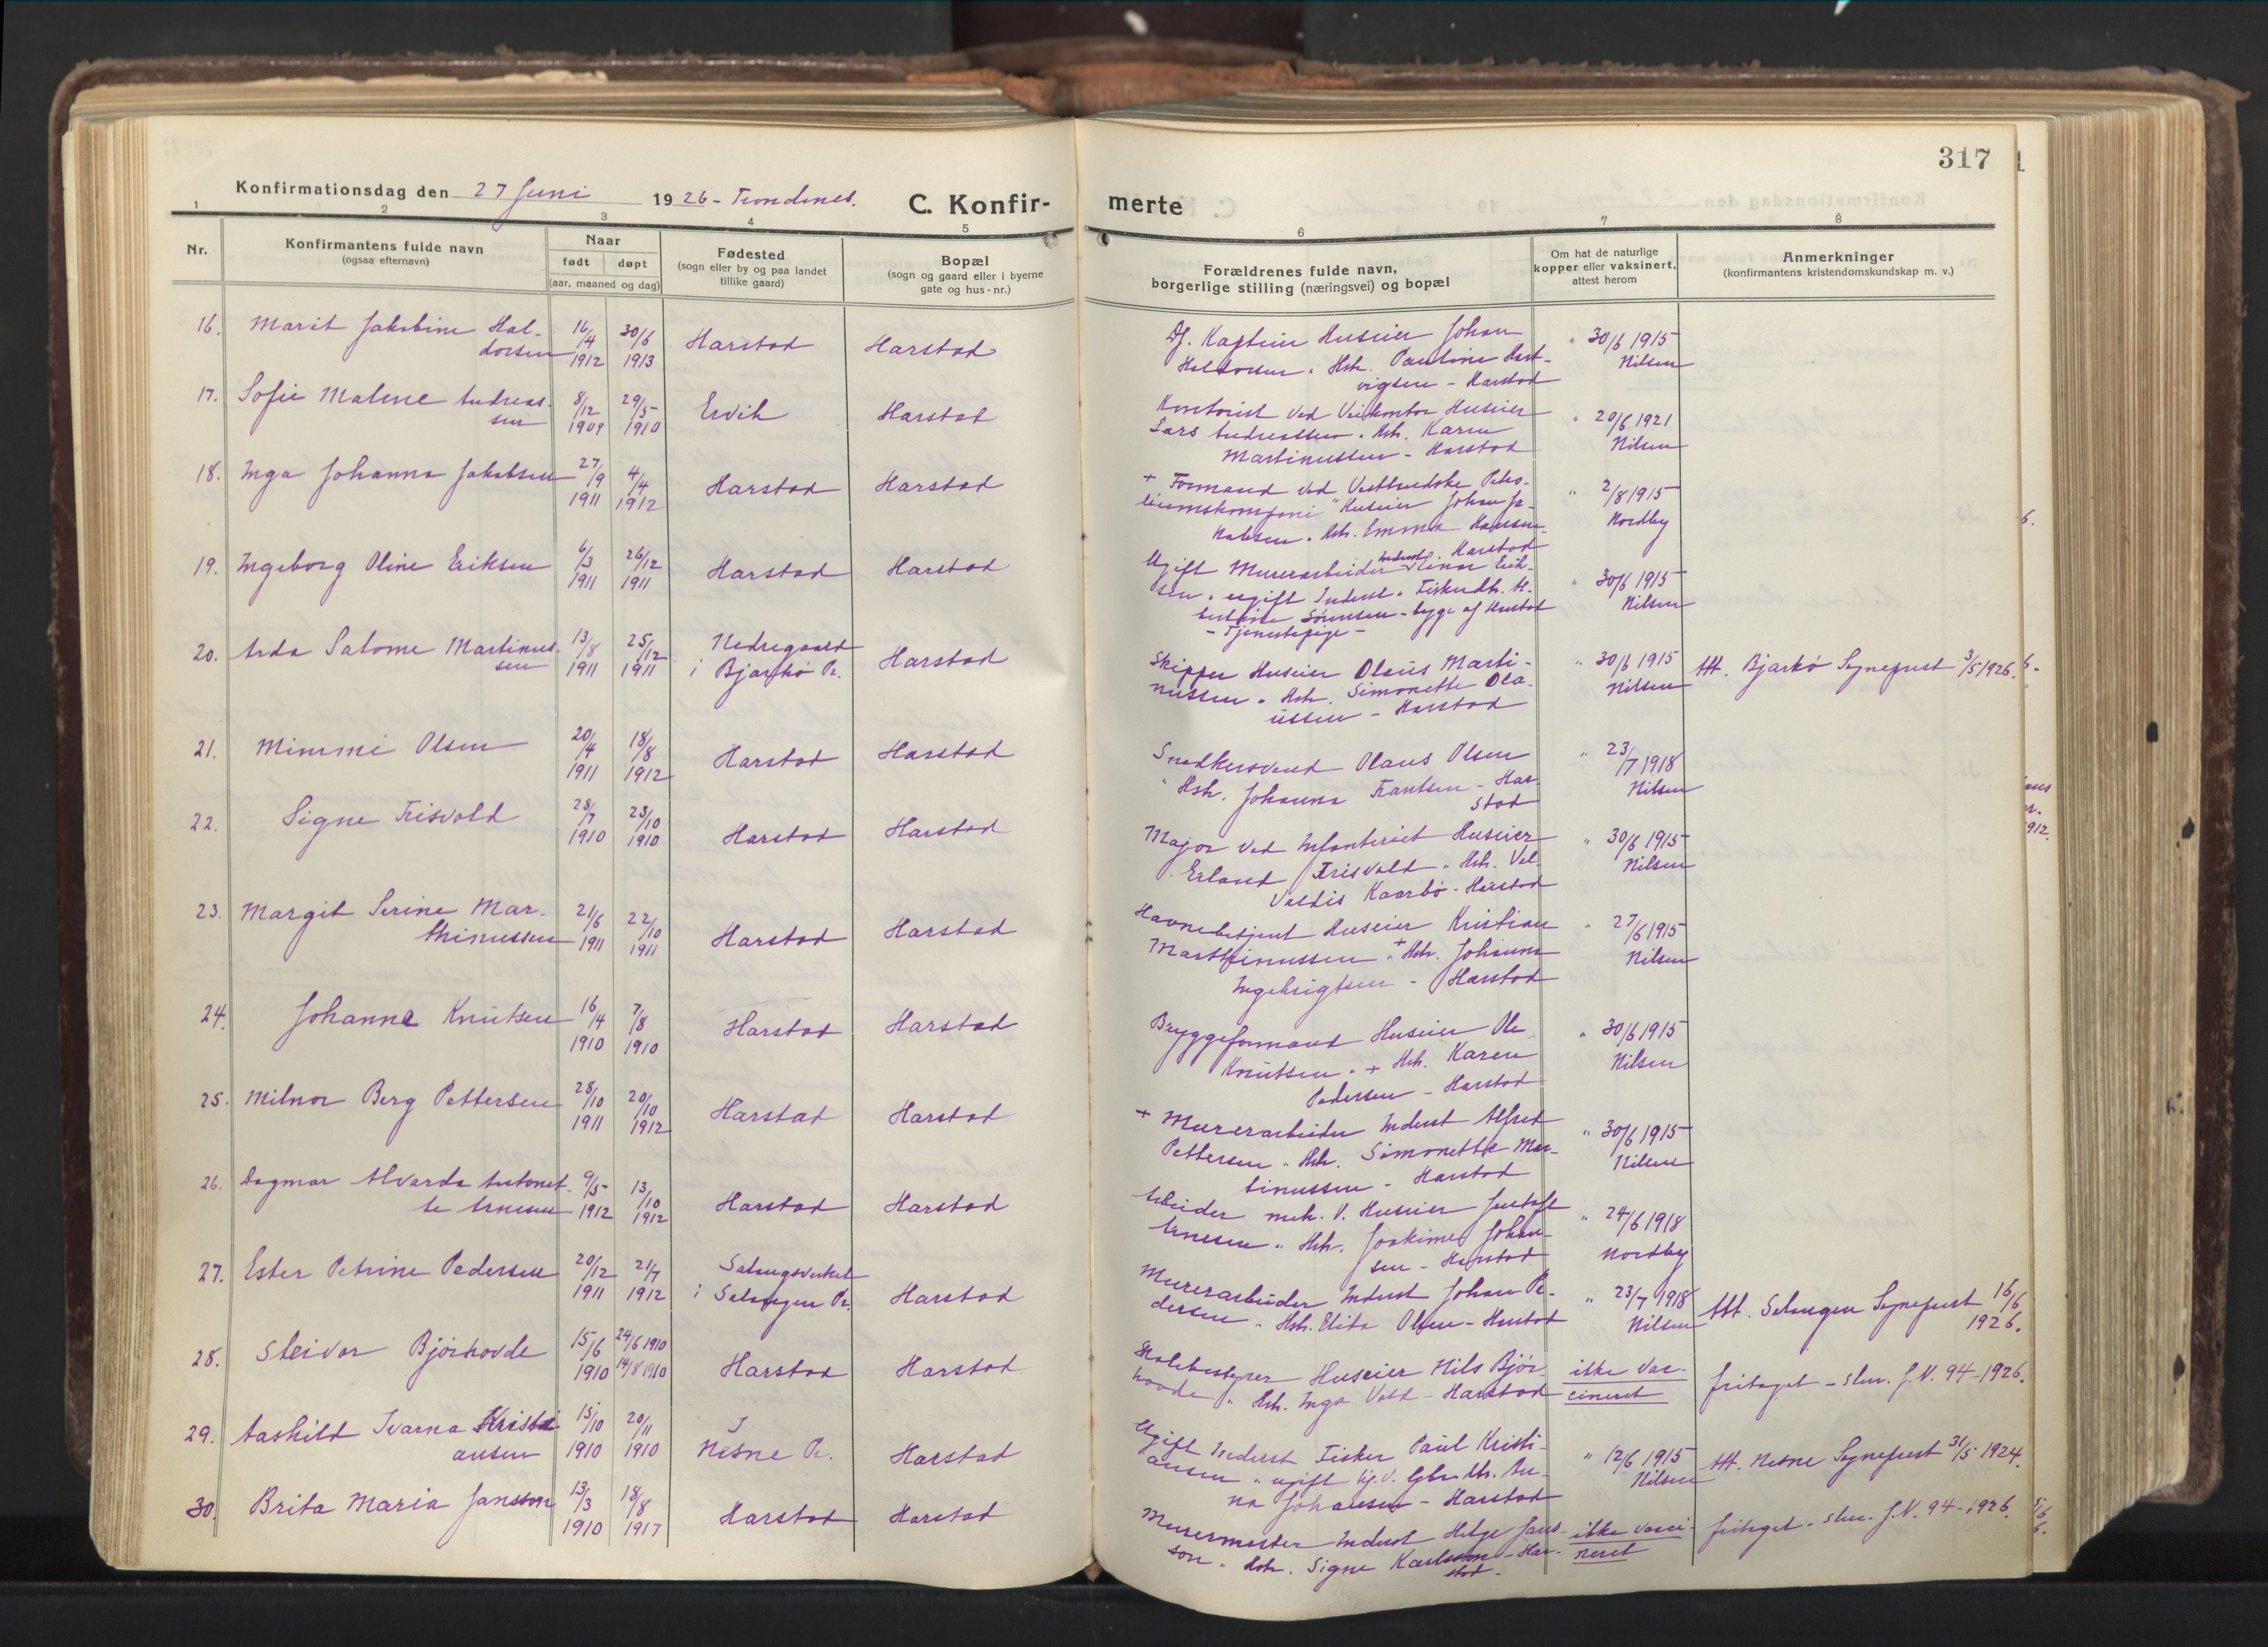 317
Konfirmationsdag den 27 Juni 1926 - Trondenes.
C. Konfirmerte
1 2 3 4 5 6 7 8
Nr.
Konfirmantens fulde navn
(ogsaa efternavn)
Naar
født døpt
(aar, maaned og dag)
Fødested
(sogn eller by og paa landet
tillike gaard)
Bopæl
(sogn og gaard eller i byerne
gate og hus-nr.)
Forældrenes fulde navn,
borgerlige stilling (næringsvei) og bopæl
Om hat de naturlige
kopper eller vaksinert,
attest herom
Anmerkninger
(konfirmantens kristendomskundskap m. v.)
16. Marit Jakobine Hal-
dorsen
16/4 1912 30/6 1913
Harstad Harstad
Df. Kaptein Huseier Johan
Haldorsen " Hstr. Pauline Hart-
vigsen - Harstad
" 30/6 1915
Nilsen
17. Sofie Malene Andreas-
sen
8/12 1909 29/5 1910
Ervik Harstad
Kontorist ved Veikontor Huseier
Lars Andreassen " Hstr. Karen
Martinussen - Harstad
" 20/6 1921
Nilsen
18. Inga Johanna Jakobsen
27/9 1911 4/4 1912
Harstad Harstad
+ Formand ved Vestlandske Petro-
leumskompani " Huseier Johan Ja-
kobsen " Hstr. Emma Hansen -
Harstad
" 2/8 1915
Nordby
19. Ingeborg Oline Eriksen
6/3 1911 26/12 1911
Harstad Harstad
Ugift Murerarbeider Inderst Einar Erik-
sen " ugift Inderst " Fiskerdtr.
Sørensen - bygge af Harstad
- Tjenestepige -
" 30/6 1915
Nilsen
20. Arda Salome Martinus-
sen
13/8 1911 25/12 1911
Nedregaard
i Bjarkø Pr.
Harstad
Skipper Huseier Olaus Marti-
nussen " Hstr. Simonette Ola-
ussen - Harstad
" 30/6 1915
Nilsen
Att. Bjarkø Sogneprest 3/5 1926.
21. Mimmi Olsen
20/4 1911 18/8 1912
Harstad Harstad
Snedkersvend Olaus Olsen
" Hstr. Johanna Frantsen - Har-
stad
" 23/7 1918
Nilsen
22. Signe Frisvold
28/7 1910 23/10 1910
Harstad Harstad
Major ved Infanteriet Huseier
Erland Frisvold " Hstr. Val-
Valdis Kaarbø - Harstad
" 30/6 1915
Nilsen
23. Margit Serine Mar-
thinussen
21/6 1911 22/10 1911
Harstad Harstad
Havnebetjent Huseier Kristian
Marthinussen " + Hstr. Johanna
Ingebrigtsen - Harstad
" 27/6 1915
Nilsen
24. Johanne Knutsen
16/4 1910 7/8 1910
Harstad Harstad
Bryggeformand Huseier Ole
Knutsen " + Hstr. Karen
Pedersen - Harstad
" 30/6 1915
Nilsen
25. Milnor Berg Pettersen
28/10 1911 20/10 1912
Harstad Harstad
+ Murerarbeider Inderst Alfred
Pettersen " Hstr. Simonette Mar-
tinussen - Harstad
" 30/6 1915
Nilsen
26. Dagmar Alvarda Antonet-
te Arnesen
9/5 1912 13/10 1912
Harstad Harstad
Arbeider mek. V. Huseier Gustaf
Arnesen " Hstr. Joakime Johan-
sen - Harstad
" 24/6 1918
Nordby
27. Ester Petrine Pedersen
20/12 1911 21/7 1912
Salangsverket
i Salangen Pr.
Harstad
Murerarbeider Inderst Johan Pe-
dersen " Hstr. Elita Olsen - Harstad
" 23/7 1918
Nilsen
Att. Salangen Sogneprest 16/6
1926.
28. Steivor Bjørhovde
15/6 1910 24/6 1910
14/8 1910
Harstad Harstad
Skolebestyrer Huseier Nils Bjør-
hovde " Hstr. Inga Vold - Harstad
ikke vac-
cineret
fritaget - skr. J.N. 94 - 1926.
29. Aashild Ivarna Kristi
ansen
15/10 1910 20/11 1910
I
Nesne Pr.
Harstad
Ugift Inderst Fisker Paul Kristi-
ansen " ugift An-
na Johansen - Harstad
" 12/6 1915
Nilsen
Att. Nesne Sogneprest 31/5 1924.
30. Brita Maria Jansson
13/3 1910 18/8 1917
Harstad Harstad
Murermester Inderst Helge Jans-
son " Hstr. Signe Karlsson - Har-
stad -
ikke vacci-
neret
fritaget - skr. J.N. 94 - 1926.